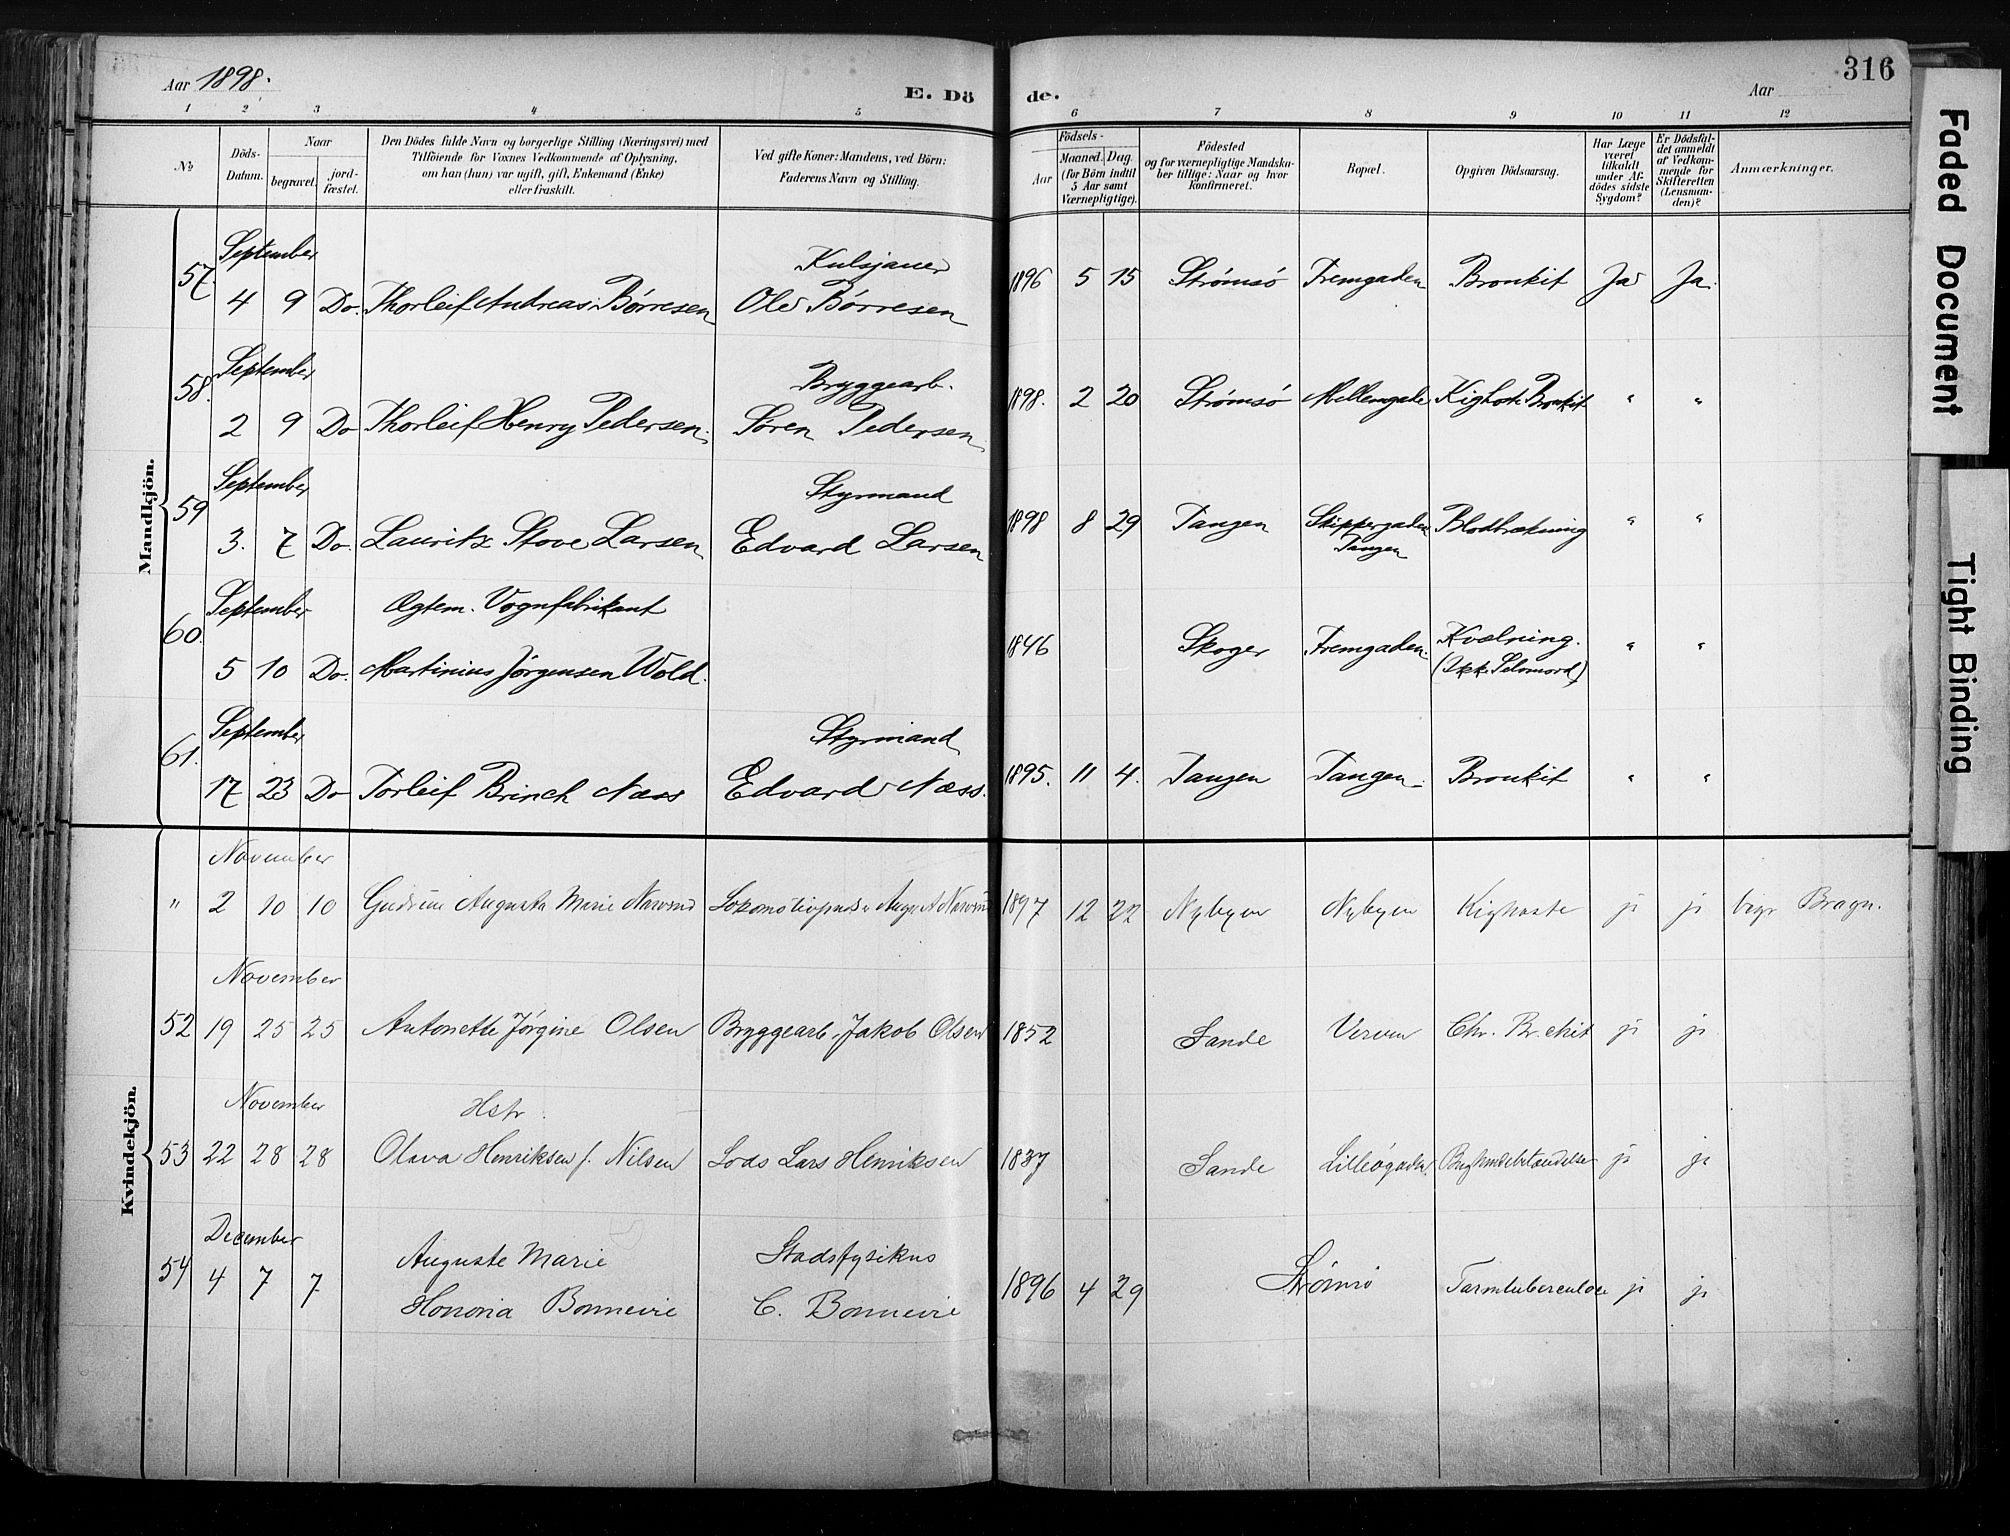 Aar 1898.
E. Dö de.
Aar
316
1 2 3 4 5 6 7 8 9 10 11 12
No
Döds-Datum.
Naar
begravet.
jord-fæstet.
Den Dödes fulde Navn og borgerlige Stilling (Næringsvei) med Tilföiende for Voxnes Vedkommende af Oplysning, om han (hun) var ugift, gift, Enkemand (Enke) eller fraskilt.
Ved gifte Koner: Mandens, ved Börn: Faderens Navn og Stilling.
Födsels-
Aar
Maaned. Dag.
(for Börn indtil 5 Aar samt Værnepligtige).
Födested og for værnepligtige Mandskaber tillige: Naar og hvor konfirmeret.
Bopæl.
Opgiven Dödsaarsag.
Har Læge været tilkaldt under Afdödes sidste Sygdom?
Er Dödsfaldet anmeldt af Vedkommende for Skifteretten (Lensmanden)?
Anmærkninger.
Mandkjön.
57. September Kulsjauer
4 9 Do. Thorleif Andreas Børresen Ole Børresen 1896 5 15 Strømsö Fremgaden Bronkit Ja Ja.
58. September Bryggearb.
2 9 Do Thorleif Henry Pedersen. Søren Pedersen. 1898. 2 20 Strømsö Mellemgade Kighoste Bronkit " "
59 September Styrmand
3. 7 Do. Lauritz Stove Larsen Edvard Larsen 1898 8 29 Tangen Skippergaden Tangen Blodbrækning " "
60. September Ægtem. Vognfabrikant
5 10 Do. Martinius Jørgensen Wold. 1846 Skoger Fremgaden. Kvælning. (Ikke Selvmord) " "
61. September Styrmand
17 23 Do Torleif Brinch Næss Edvard Næss. 1895. 11 4. Tangen Tangen Bronkit " "
Kvindekjön.
November
" 2 10 10 Gudrun Augusta Marie 1897 12 22 Nybyen Nybyen Kighoste ja ja begr Bragn.
November
52 19 25 25 Antonette Jørgine Olsen Bryggearb. Jakob Olsen 1852 Sande Verven Chr. Br.chit ja ja
November Hstr.
53 22 28 28 Olava Henriksen f. Nilsen Lods Lars Henriksen 1837 Sande Lilleøgaden Bughindebetændelse ja ja
December
54 4 7 7 Auguste Marie Honoria Bonnevie Stadsfysikus C. Bonnevie 1896 4 29 Strömsö Tarmtuberculose ja ja
Faded Document
Tight Binding